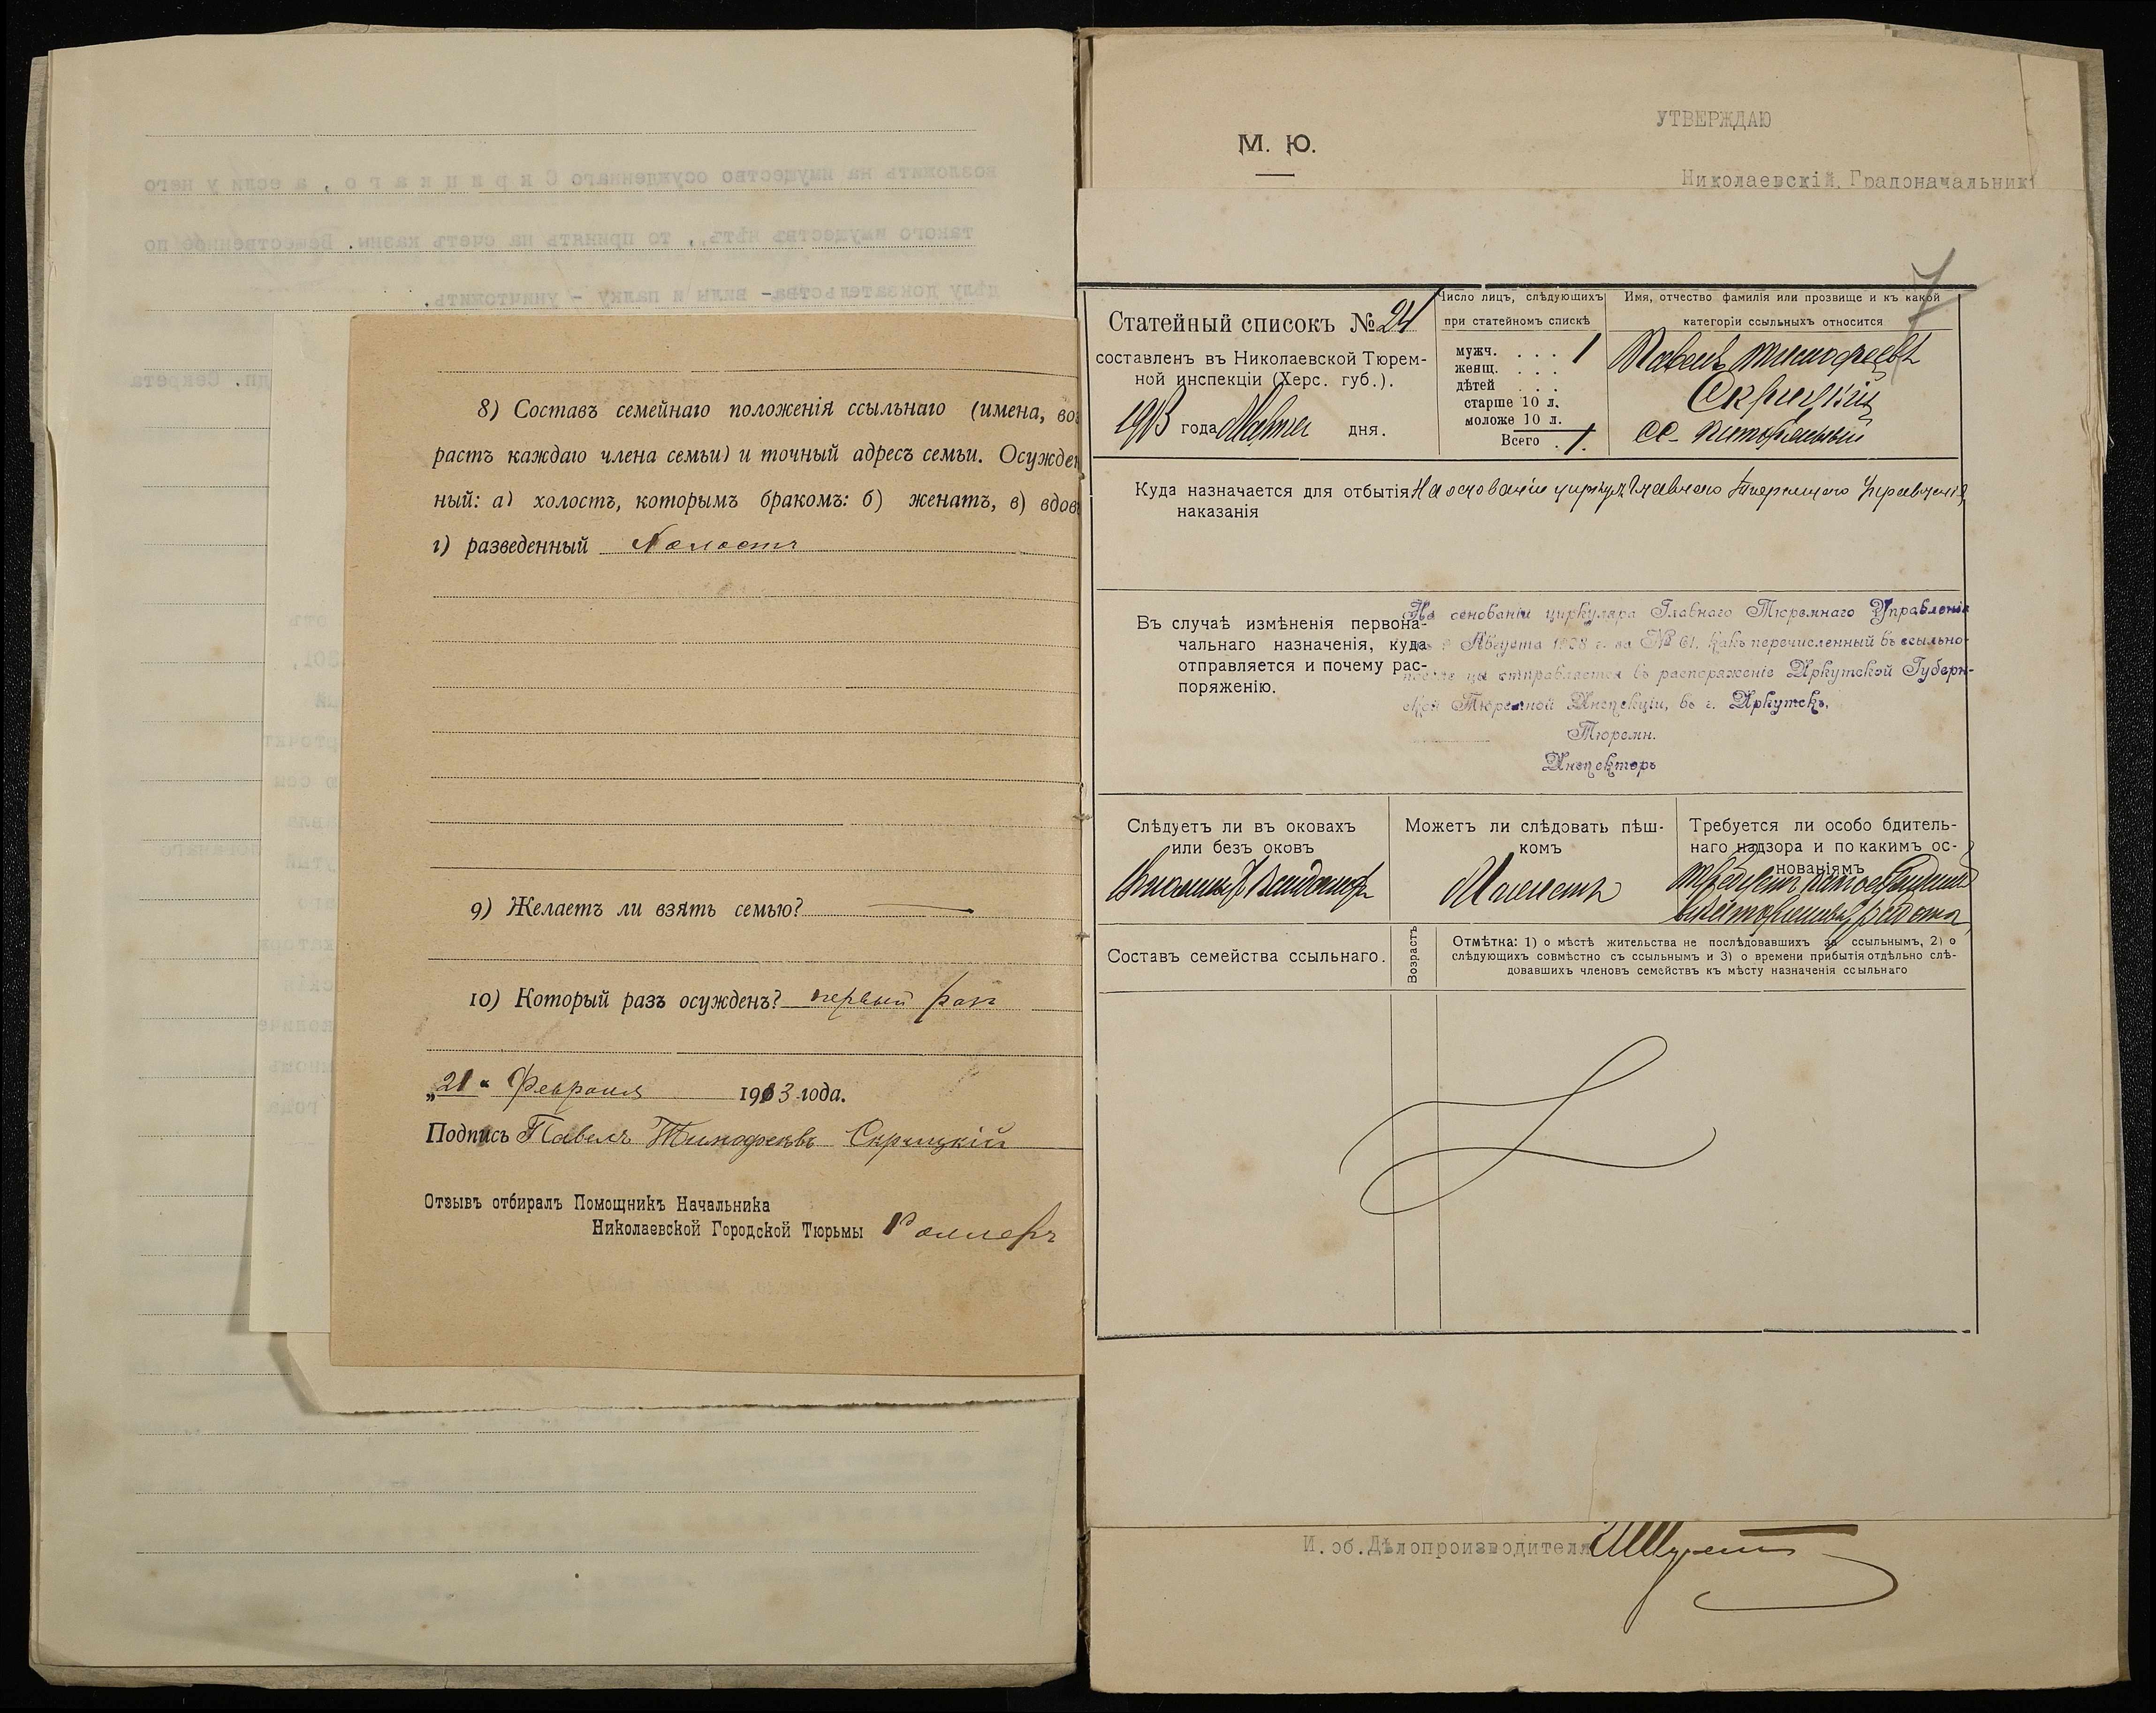 8) Составъ семейнаго положенія ссыльнаго (имена, воз
растъ каждаго члена семьи) и точный адресъ семьи. Осужден
ный: а) холостъ, которымъ бракомъ: б) женатъ, в) вдов
г) разведенный Холостъ
9) Желаетъ ли взять семью?
10) Который разъ осужденъ? первый разъ
„21“ Февраля 1913 года.
Подпись Павелъ Тимофеевъ Скрицкій
Отзывъ отбиралъ Помощникъ Начальника
Николаевской Городской Тюрьмы
возложить на имущество осужденнаго Скрицкаго, а если у него
такого имущества нѣтъ,, то принять на счетъ казны. Вещественное по
дѣлу доказательства- вилы и палку - уничтожить.
М. Ю.
УТВЕРЖДАЮ
Николаевскій Градоначальник
7
Статейный списокъ № 24
составленъ въ Николаевской Тюрем-
ной инспекціи (Херс. губ.).
1913 года Марта дня.
Число лицъ, слѣдующихъ
при статейномъ спискѣ
мужч. . . . 1
женщ. . . .
дѣтей . . .
старше 10 л.
моложе 10 л.
Всего . 1.
Имя, отчество фамилія или прозвище и къ какой
категоріи ссыльныхъ относится
Павелъ Тимофеевъ
Скрицкій
Куда назначается для отбытія На основаніи циркул. Главнаго Тюремнаго Управленія
наказанія
Въ случаѣ измѣненія первона-
чальнаго назначенія, куда
отправляется и почему рас-
поряженію.
На основаніи циркуляра Главнаго Тюремнаго Управленія
Августа 1908 г. за № 61, какъ перечисленный въ ссыльно-
отправляется въ распоряженіе Иркутской Губерн-
ской Тюремной Инспекціи, въ г. Иркутскъ.
Тюремн.
Инспекторъ
Слѣдуетъ ли въ оковахъ
или безъ оковъ
Можетъ ли слѣдовать пѣш-
комъ
Можетъ
Требуется ли особо бдитель-
наго надзора и по какимъ ос-
нованіямъ
Составъ семейства ссыльнаго.
Возрастъ
Отмѣтка: 1) о мѣстѣ жительства не послѣдовавшихъ за ссыльнымъ, 2) о
слѣдующихъ совмѣстно съ ссыльнымъ и 3) о времени прибытія отдѣльно слѣ-
довавшихъ членовъ семействъ къ мѣсту назначенія ссыльнаго
И. об. Дѣлопроизводителя